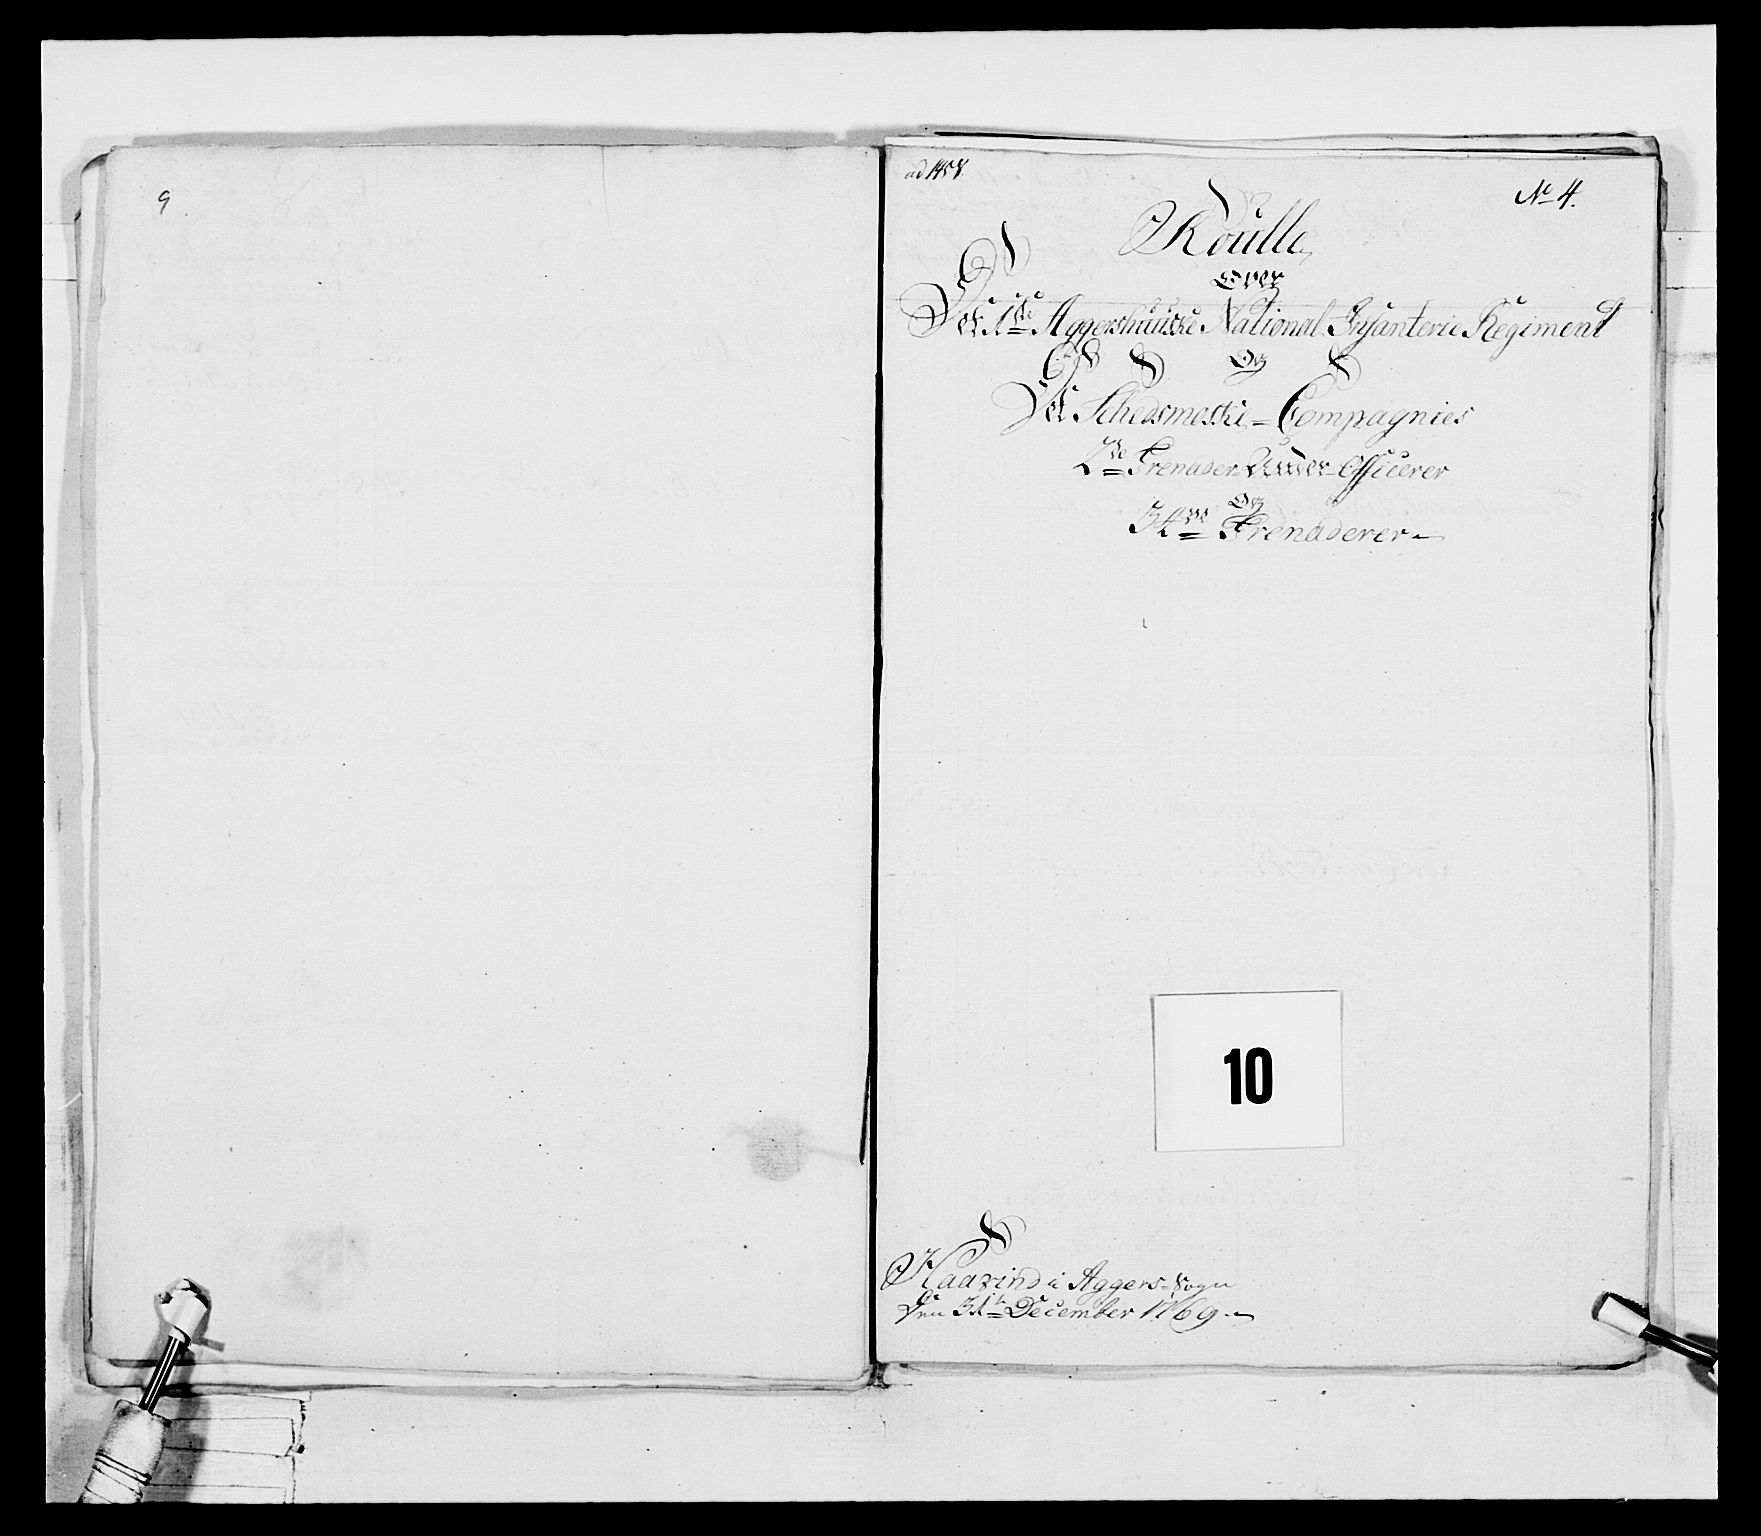 9.
ad 1458.
No 4.
Roulle
Over
Det 1ste Aggershuuske National Infanterie Regiment
Og
Det Schedsmoeske=Compagnies
2de Grenader=Under=Officerer
Og
34re Grenaderer
10
Haavind i Aggers=Sogn
Den 31te December 1769.